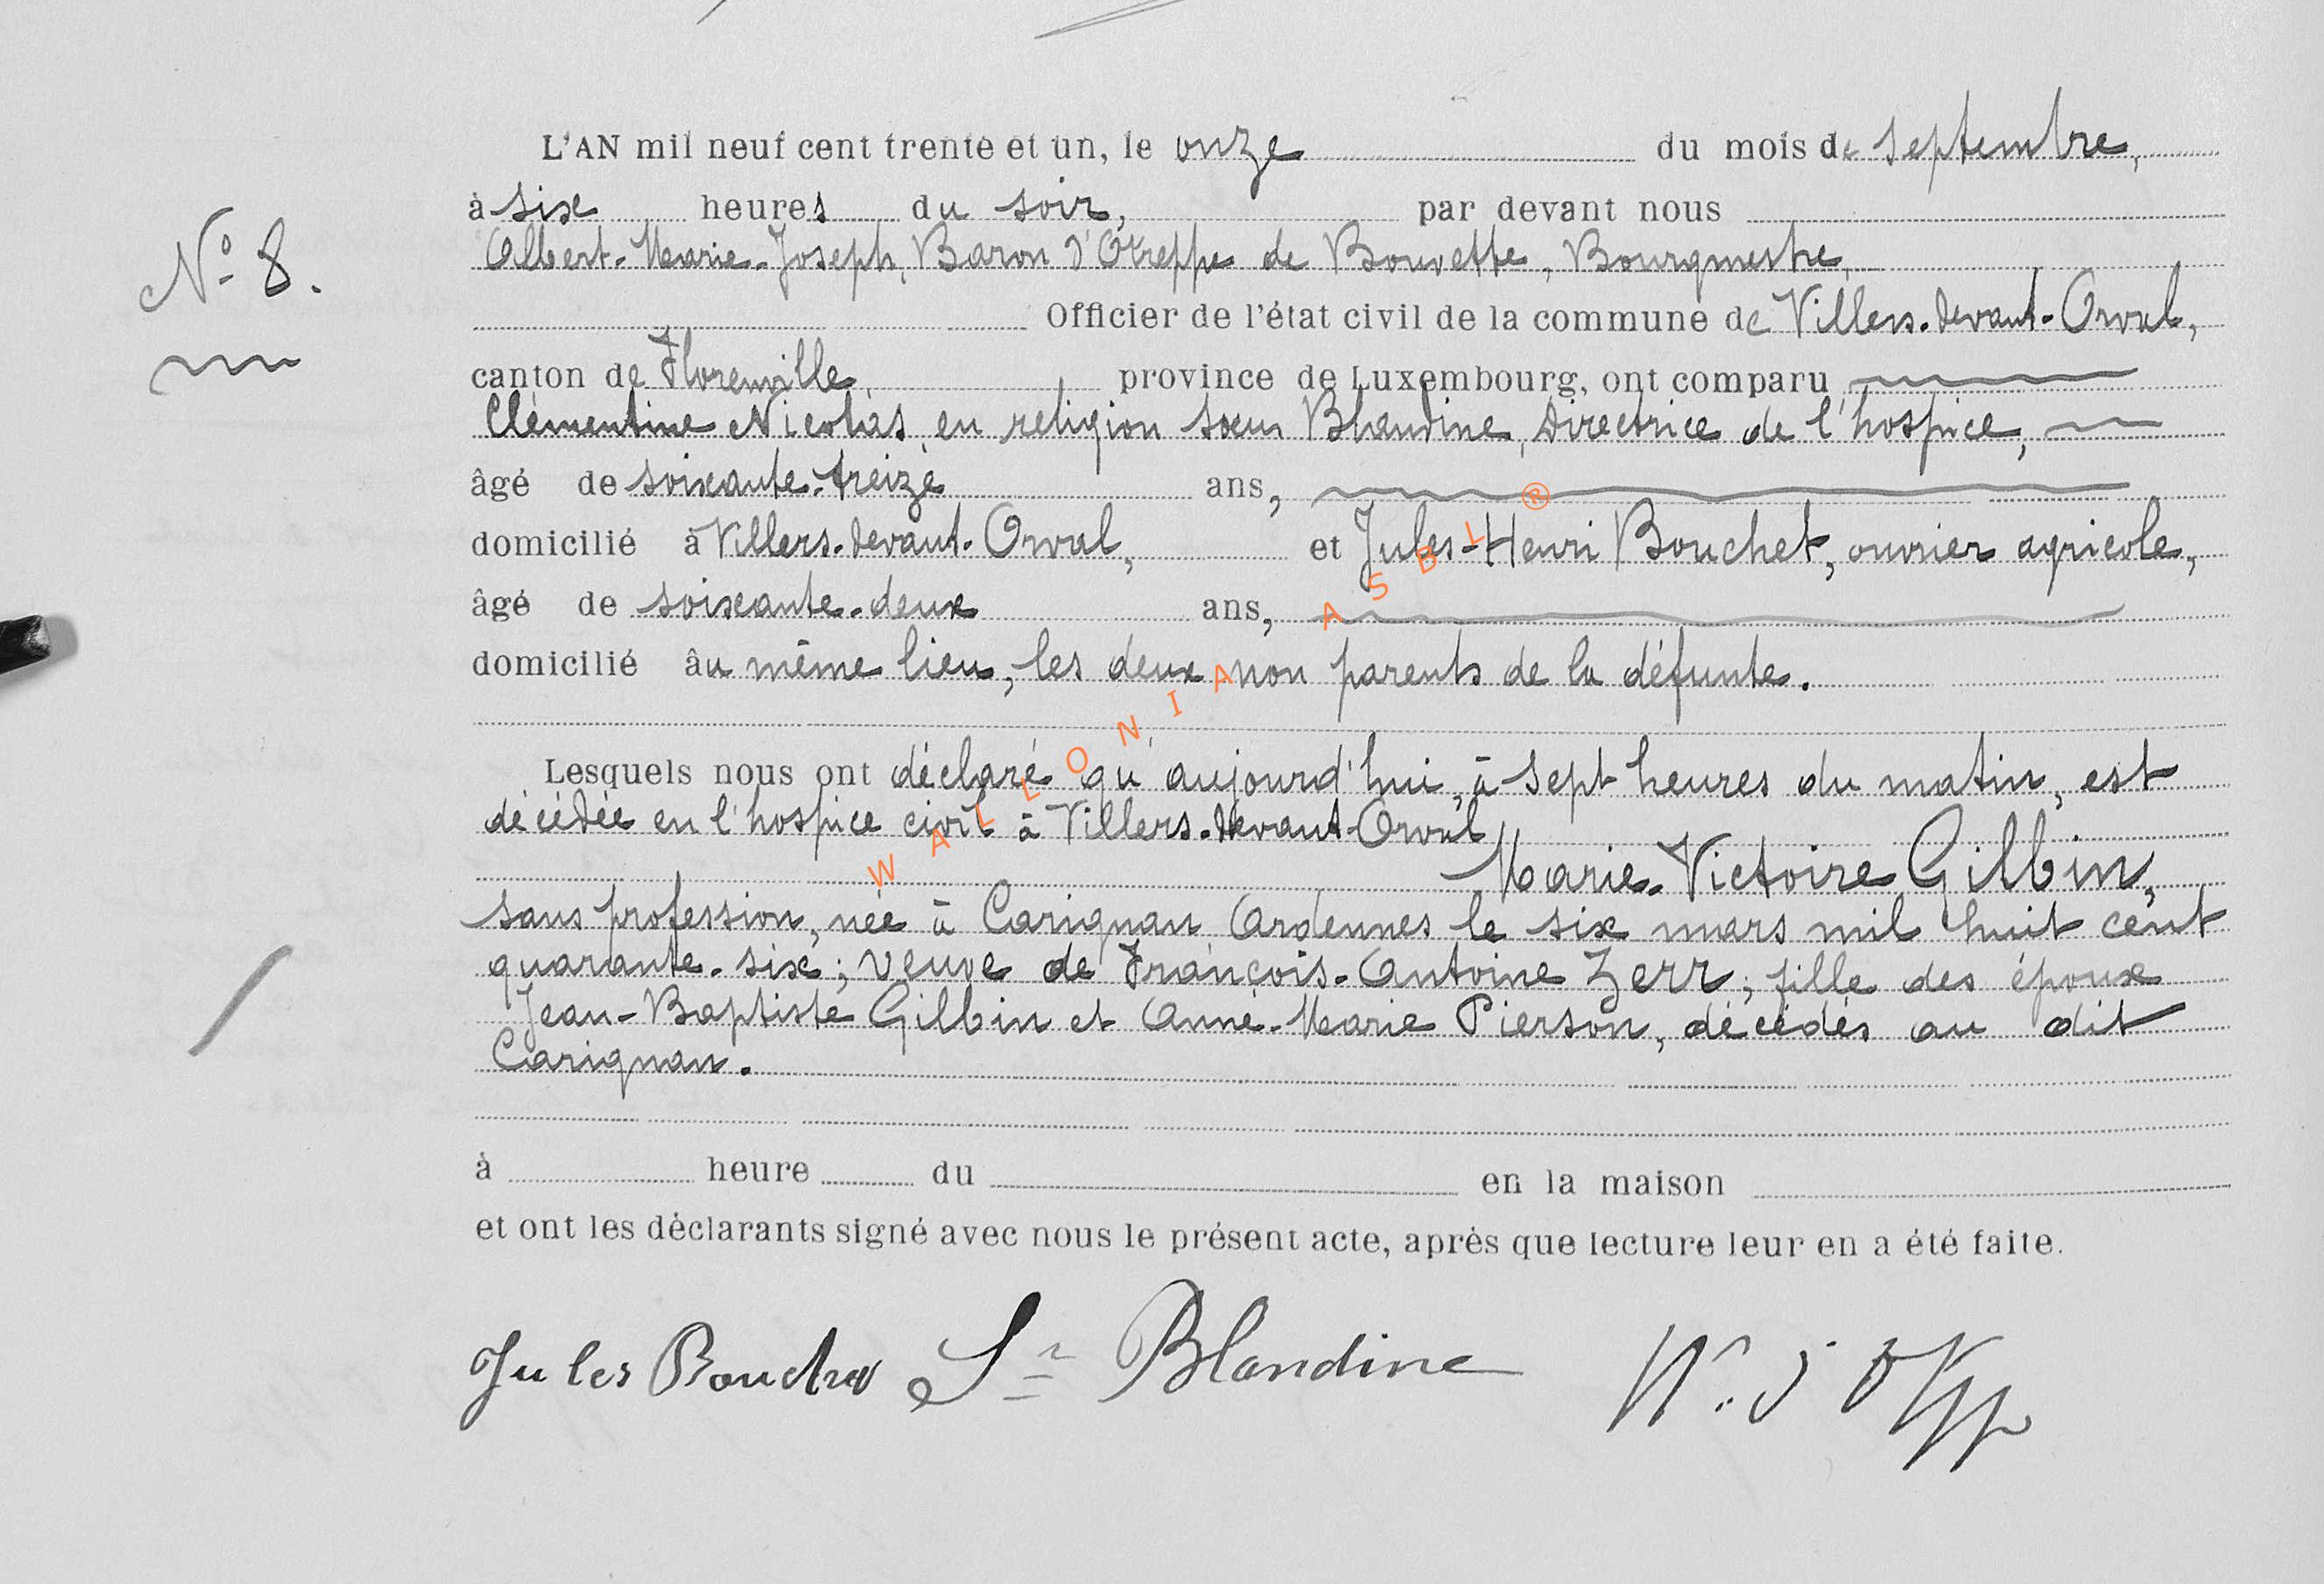 L'AN mil neuf cent trente et un, le onze du mois de septembre,
à six heures du soir, par devant nous
Albert-Marie-Joseph, Baron d'Otreppe de Bouvette, Bourgmestre,
N° 8.
Officier de l'état civil de la commune de Villers-devant-Orval,
canton de Florenville, province de Luxembourg, ont comparu
Clémentine Nicolas, en religion sœur Blandine, Directrice de l'hospice,
âgé de soixante-treize ans,
domicilié à Villers-devant-Orval, et Jules-Henri Bouchet, ouvrier agricole,
âgé de soixante-deux ans,
domicilié âu même lieu, les deux non parents de la défunte.
Lesquels nous ont déclaré qu'aujourd'hui, à sept heures du matin, est
décédée en l'hospice civil à Villers-devant-Orval
Marie-Victoire Gilbin,
sans profession, née à Carignan, Ardennes le six mars mil huit cent
quarante-six; veuve de François-Antoine Zerr; fille des époux
Jean-Baptiste Gilbin et Anne-Marie Pierson, décédés au dit
Carignan.
à heure du en la maison
et ont les déclarants signé avec nous le présent acte, après que lecture leur en a été faite.
Jules Bouchet Sr Blandine
WALLONIA ASBL ®